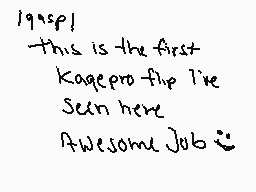 |gasp|
this is the first
Kagepro flip I've
seen here
Awesome Job :)